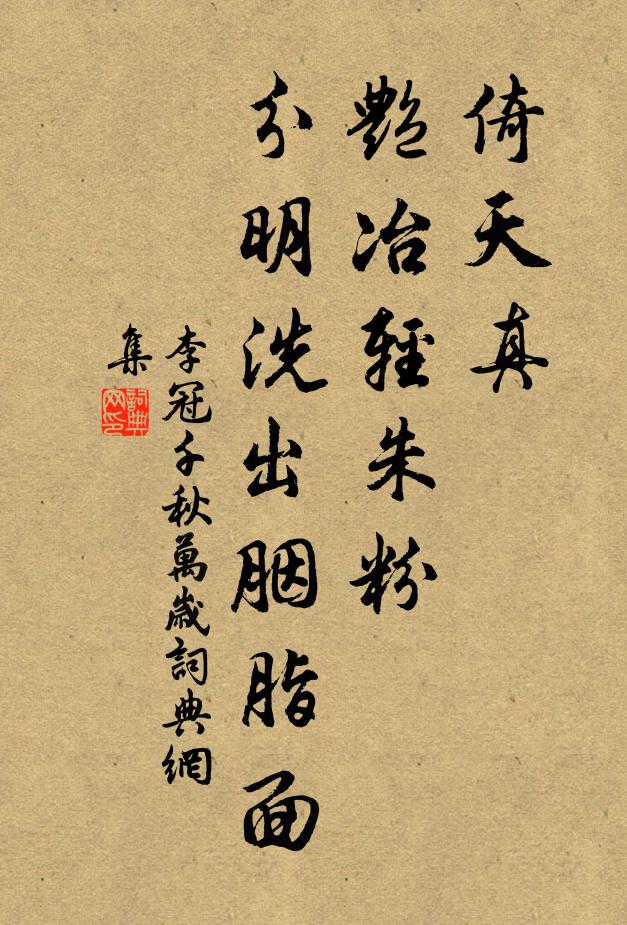 倚天真
艷冶輕朱粉
分明洗出胭脂面
李冠千秋萬歲詞典網
集
詞典
网印